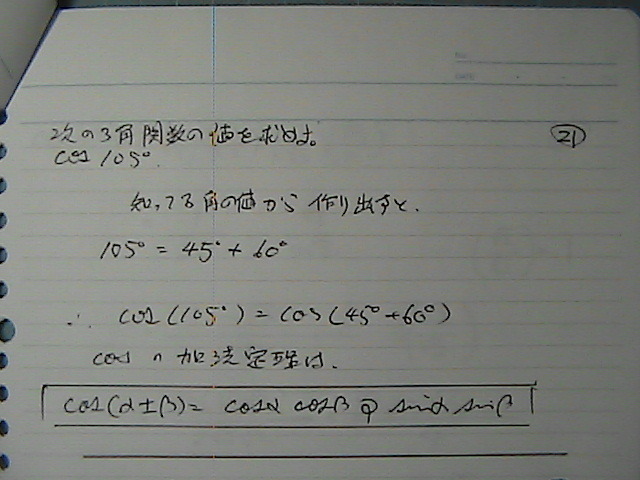 次の3角関数の値を求めよ。 ㉑
cos 105°.
知ってる角の値から作り出すと、
105° = 45° + 60°
∴ cos(105°) = cos(45°+60°)
cos の加法定理は、
cos(α±β) = cosα cosβ ∓ sinα sinβ